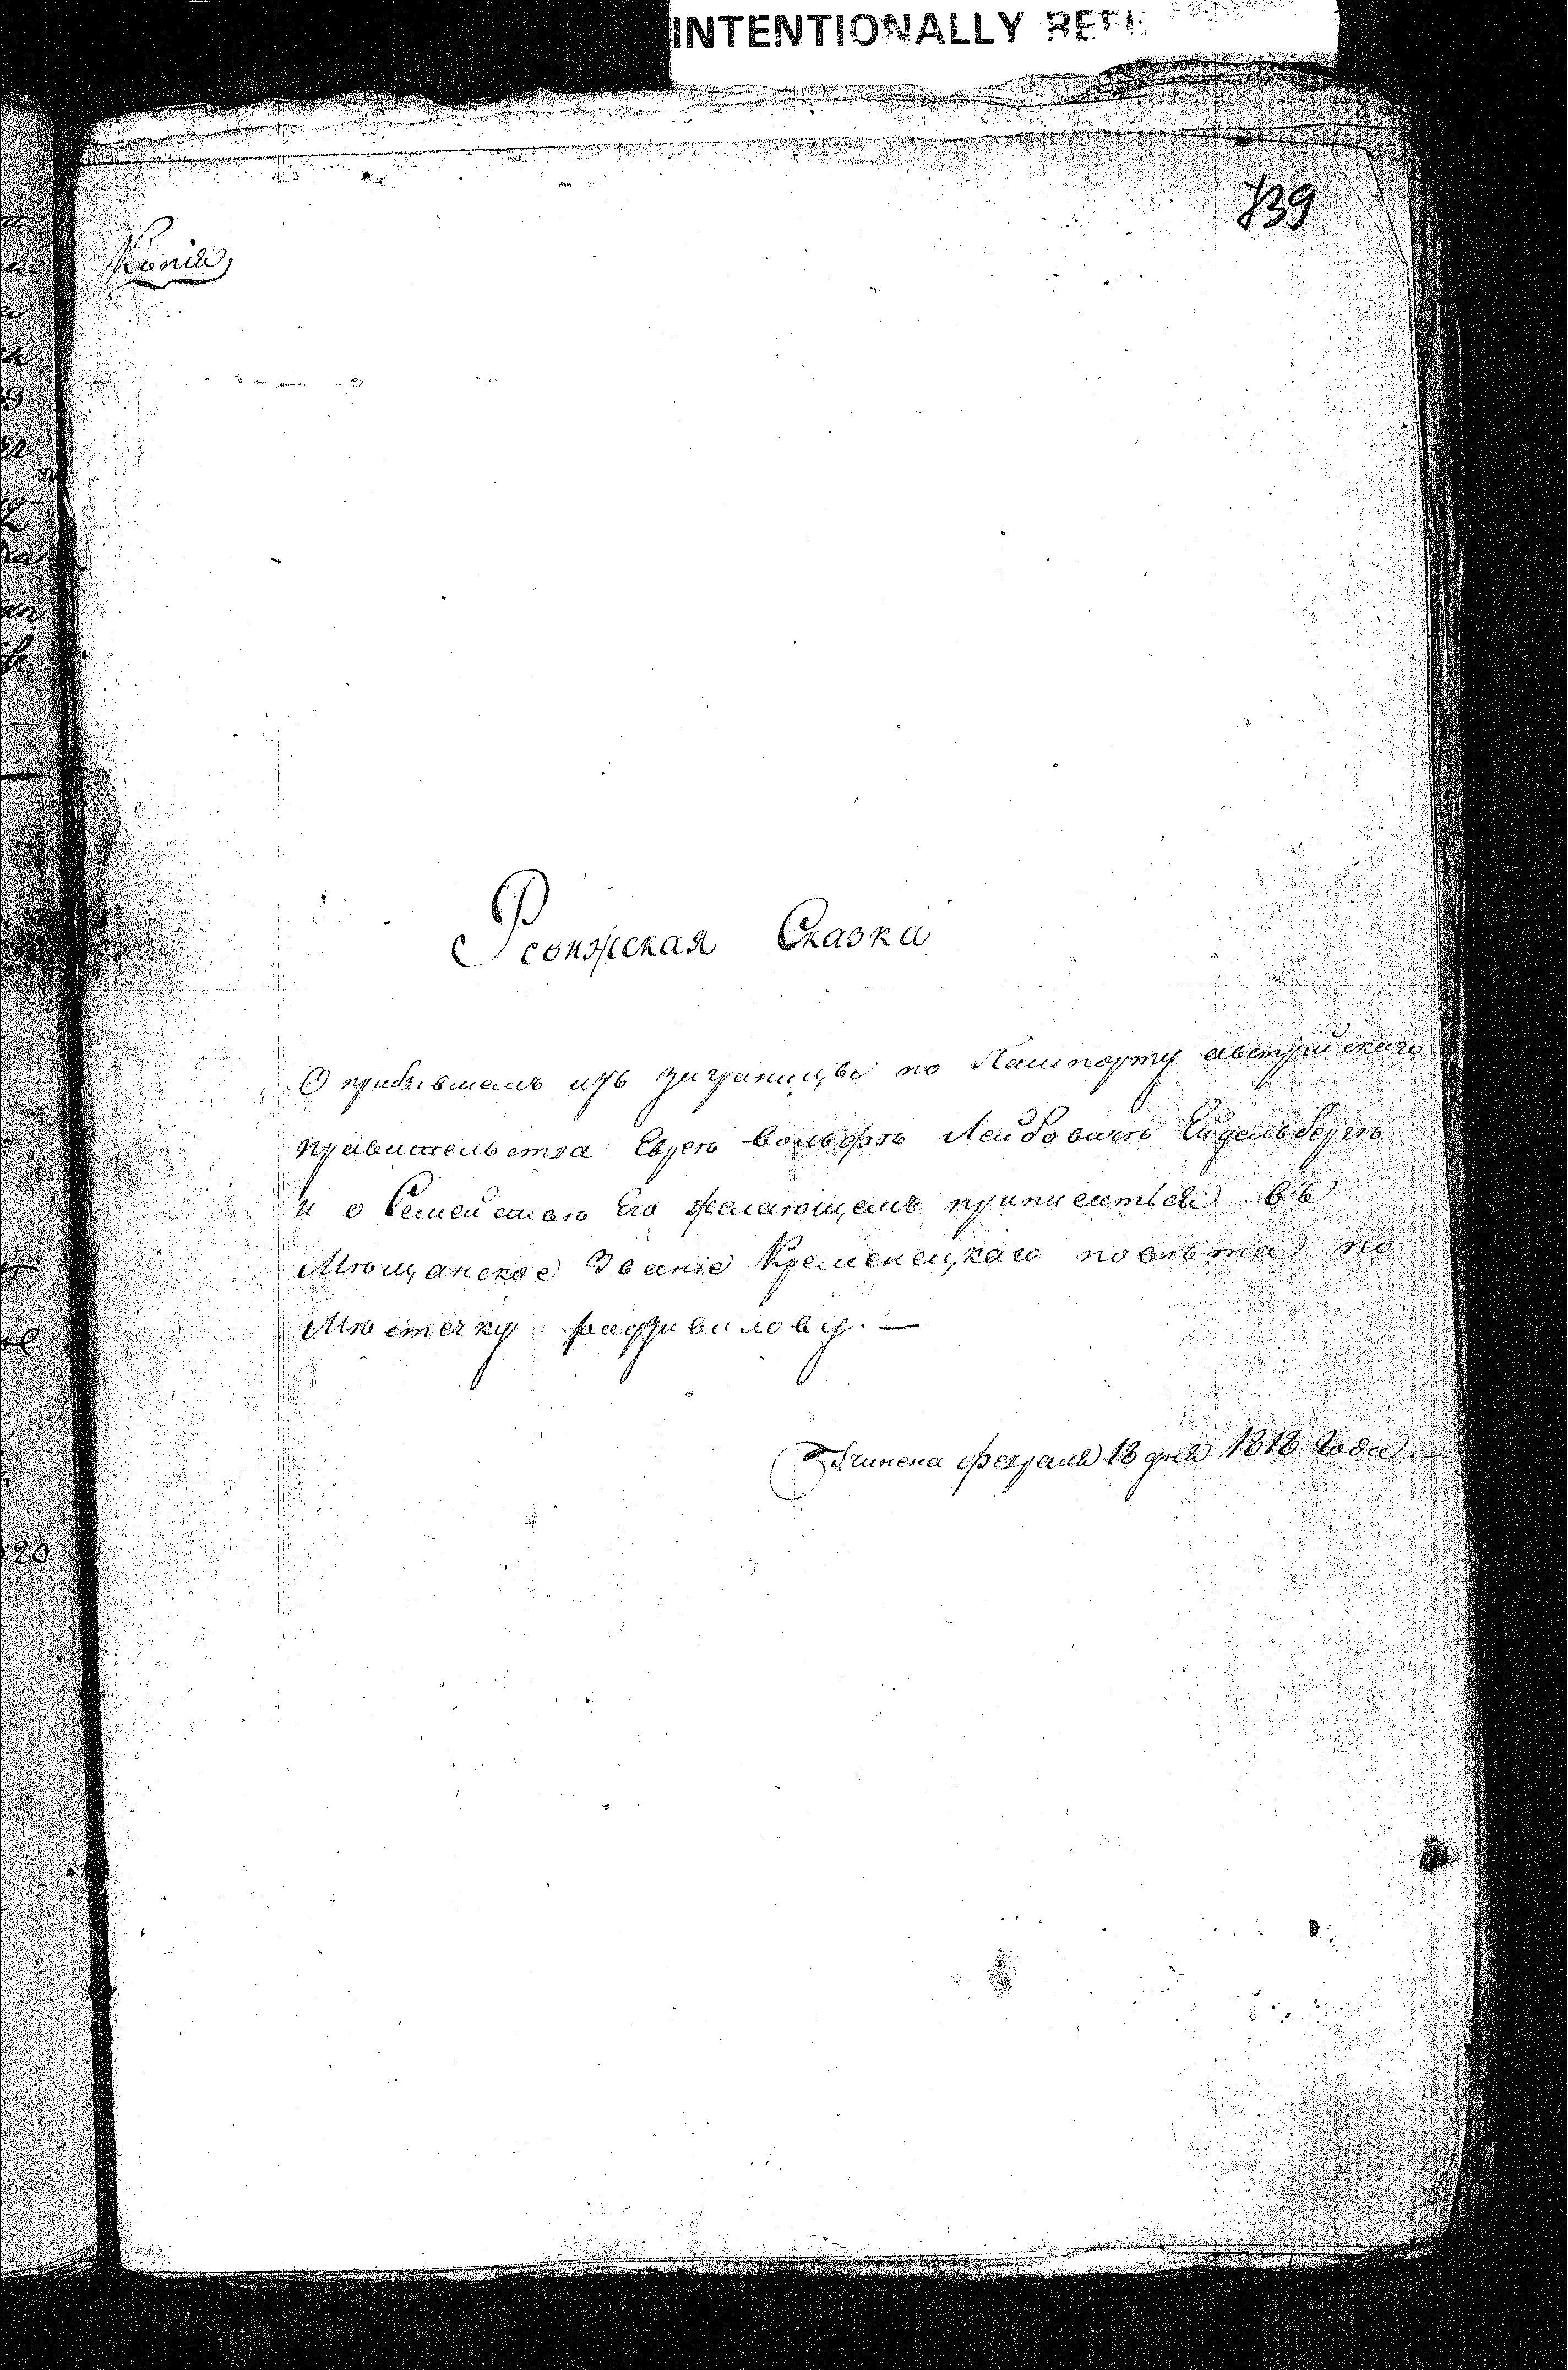 INTENTIONALLY
739
Копія
Ревижская Сказка
О прибывшемъ изъ заграницы по Пашпорту австрійскаго
правительства Еврею Вольфѣ Лейбовичѣ Ейдельбергѣ
и о Семействѣ Его желающемъ приписатьця въ
Мѣщанское Званіе Кременецкаго повѣта по
Мѣстечку Радзивилову. —
Учинена февраля 18 дня 1818 Года. —
20